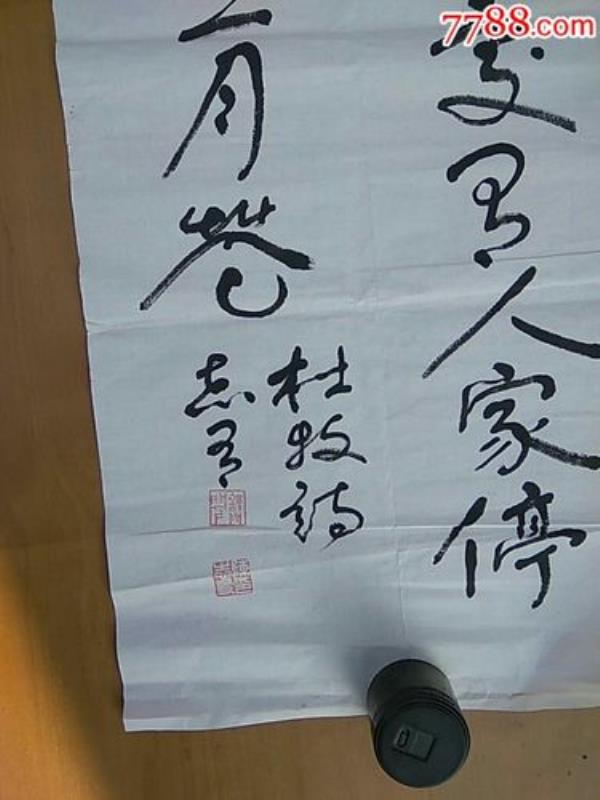 7788.com
處有人家停
二月花
杜牧詩
志